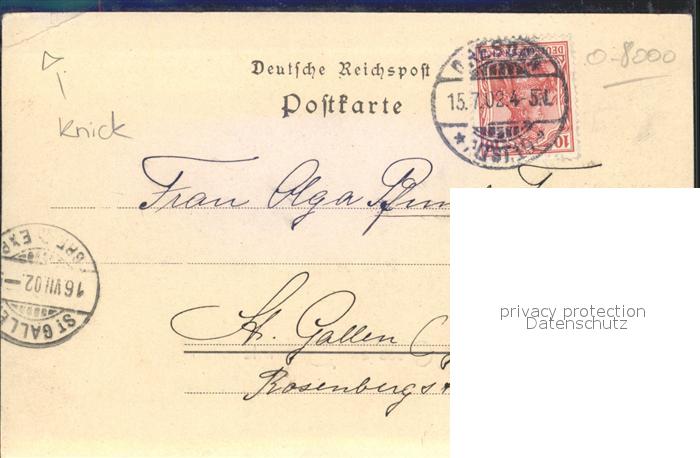 Deutsche Reichspost
Postkarte
DRESDEN
15.7.02. 4-5N.
ALTST.
10
0-8000
Knick
Frau Olga
St. Gallen
Rosenbergs
BRF. EXP.
16 VII 02.
ST. GALLEN
privacy protection
Datenschutz